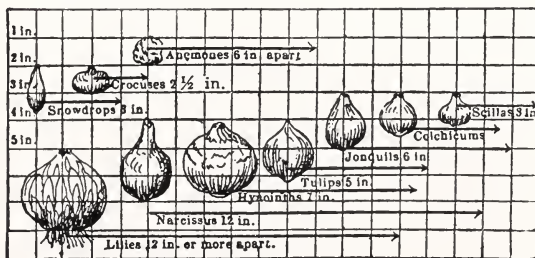 1 in.
2 in.
Anemones 6 in. apart
3 in.
Crocuses 2 ½ in.
Snowdrops 3 in.
Scillas 3 in.
4 in.
Colchicums
5 in.
Jonquils 6 in
Tulips 5 in.
Hyacinths 7 in.
Narcissus 12 in.
Lilies 12 in. or more apart.